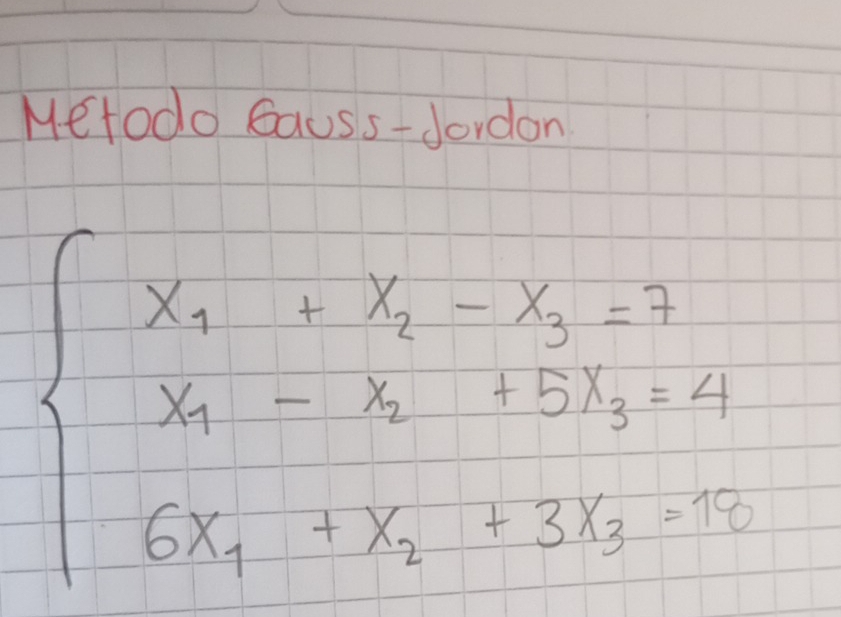 Método Gauss-Jordan
X₁ + X₂ - X₃ = 7
X₁ - X₂ + 5X₃ = 4
6X₁ + X₂ + 3X₃ = 18